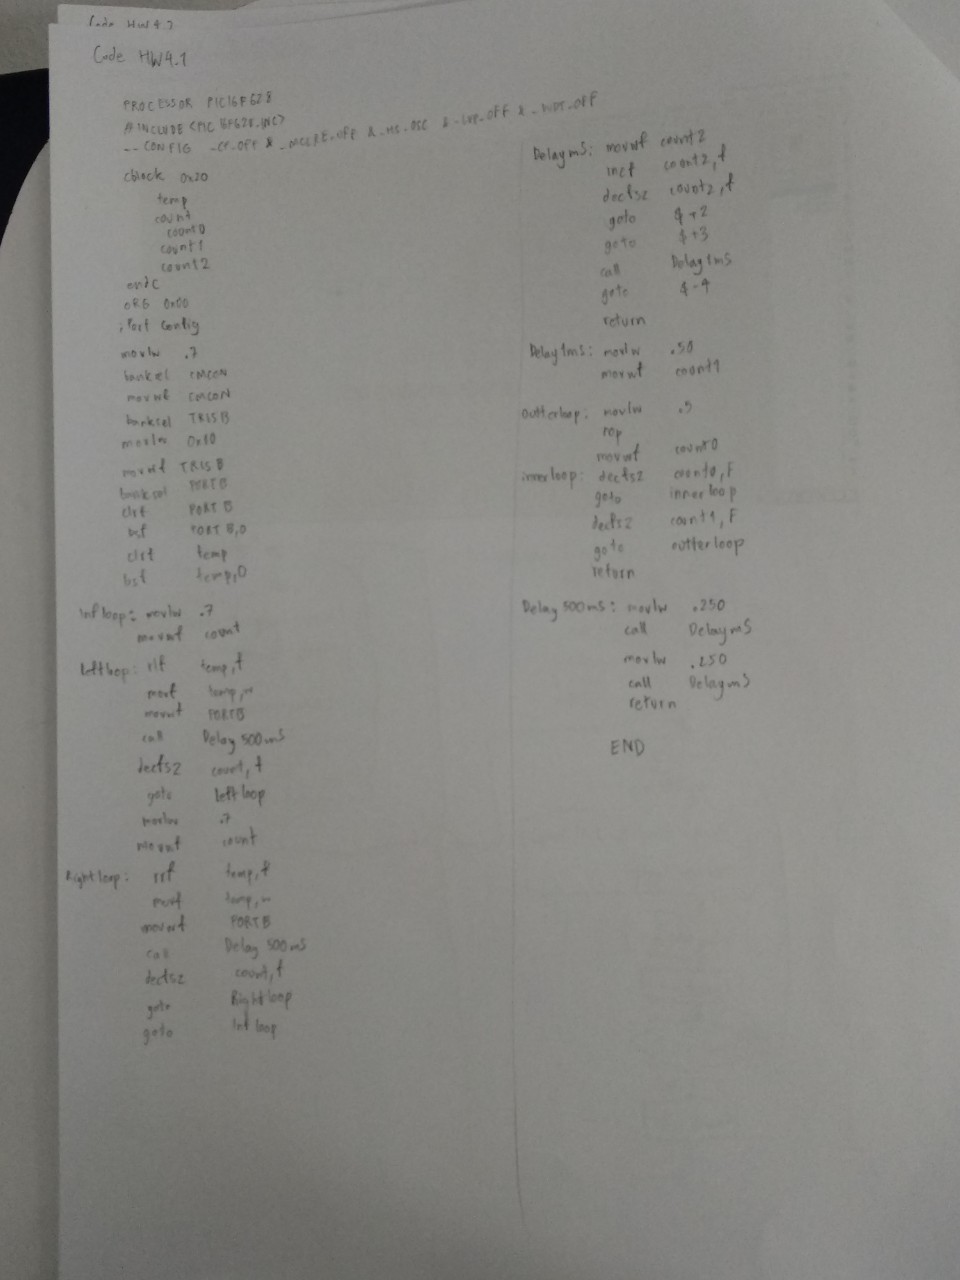 Code HW4.3
Code HW4.1
PROCESSOR PIC16F628
#INCLUDE <PIC16F628.INC>
-- CONFIG _CP_OFF & _MCLRE_OFF & _HS_OSC & _LVP_OFF & _WDT_OFF
cblock 0x20
temp
count
count0
count1
count2
endc
ORG 0x00
; Port Config
movlw .7
banksel CMCON
movwf CMCON
banksel TRISB
movlw 0x10
movwf TRISB
banksel PORTB
clrf PORTB
bsf PORTB,0
clrf temp
bsf temp,0
Infloop: movlw .7
movwf count
Leftloop: rlf temp,f
movf temp,w
movwf PORTB
call Delay500mS
decfsz count,f
goto Leftloop
movlw .7
movwf count
Rightloop: rrf temp,f
movf temp,w
movwf PORTB
call Delay500mS
decfsz count,f
goto Rightloop
goto Infloop
DelaymS: movwf count2
incf count2,f
decfsz count2,f
goto $+2
goto $+3
call Delay1mS
goto $-4
return
Delay1mS: movlw .50
movwf count1
Outterloop: movlw .5
nop
movwf count0
innerloop: decfsz count0,F
goto innerloop
decfsz count1,F
goto outterloop
return
Delay500mS: movlw .250
call DelaymS
movlw .250
call DelaymS
return
END